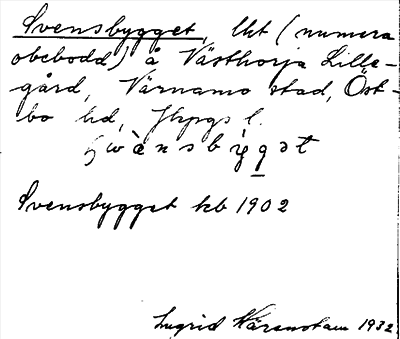 Svensbygget, lht (numera
obebodd) å Västhorja Lille-
gård, Värnamo stad, Öst-
bo hd, Jkpgs l.
svènsbỳgət
Svensbygget kb 1902
Ingrid Närenstam 1932